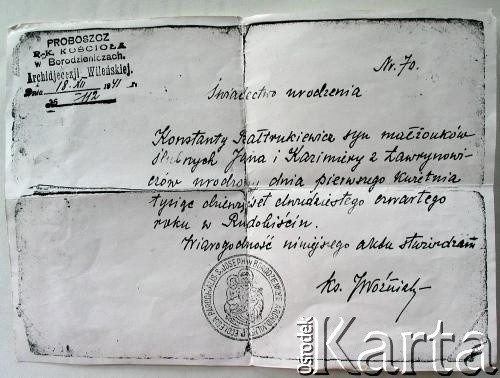 PROBOSZCZ
R.-K. KOŚCIOŁA
w Borodzieniczach.
Archidjecezji Wileńskiej.
Dnia 18. XII 1941 r.
№ 112
Nr. 70.
Świadectwo urodzenia
Konstanty Bałtrukiewicz syn małżonków
ślubnych Jana i Kazimiery z Ławrynowi-
czów urodzony dnia pierwszego kwietnia
tysiąc dziewięćset dwudziestego czwartego
roku w
Wiarogodność niniejszego aktu stwierdzam
ks. J. Woźniak
Ośrodek
Karta